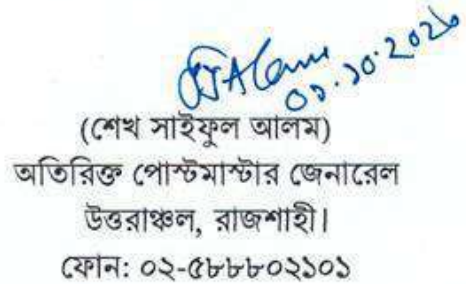 ০১.১০.২০২৬
(শেখ সাইফুল আলম)
অতিরিক্ত পোস্টমাস্টার জেনারেল
উত্তরাঞ্চল, রাজশাহী।
ফোন: ০২-৫৮৮৮০২১০১